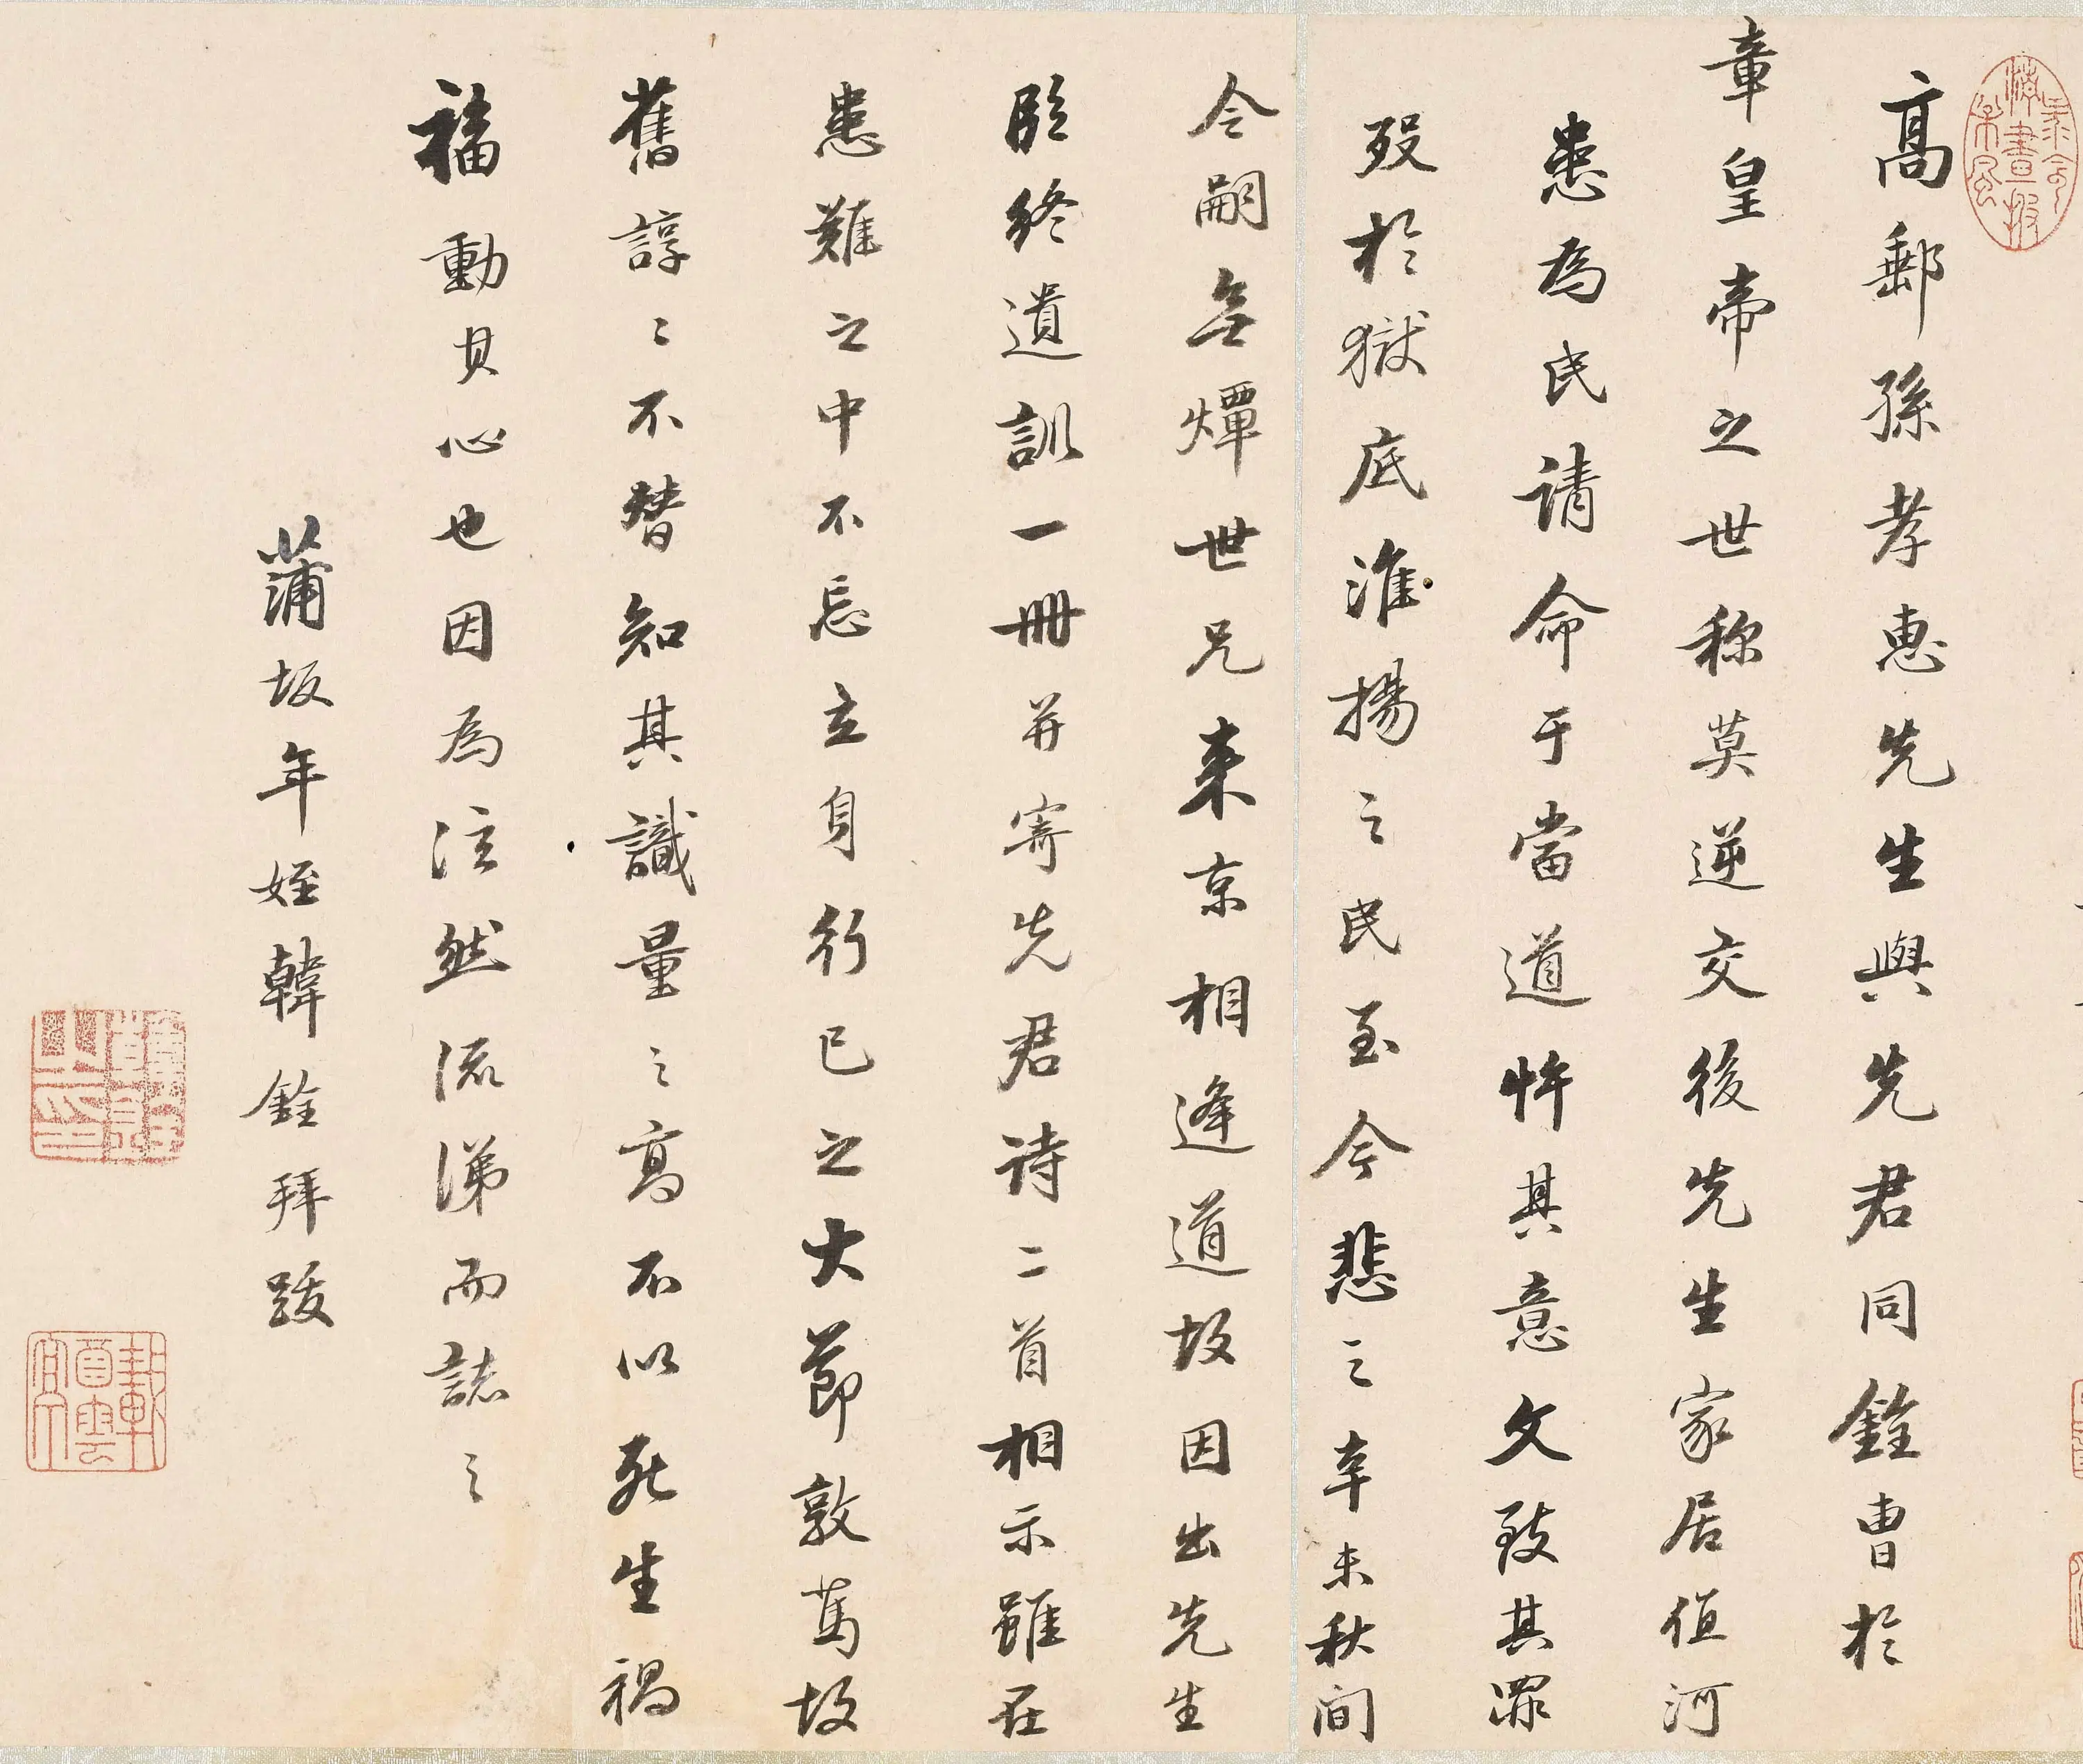 高郵孫孝惠先生與先君同銓曹於
章皇帝之世称莫逆交後先生家居值河
患為民請命于當道忤其意文致其罪
歿於獄底淮揚之民至今悲之辛未秋间
令嗣無燀世兄来京相逢道故因出先生
臨終遺訓一冊并寄先君诗二首相示雖在
患難之中不忘立身行己之大莭敦萬故
舊諄〻不替知其識量之高不以死生禍
福動其心也因為泣然流涕而誌之
蒲坂年姪韓銓拜跋